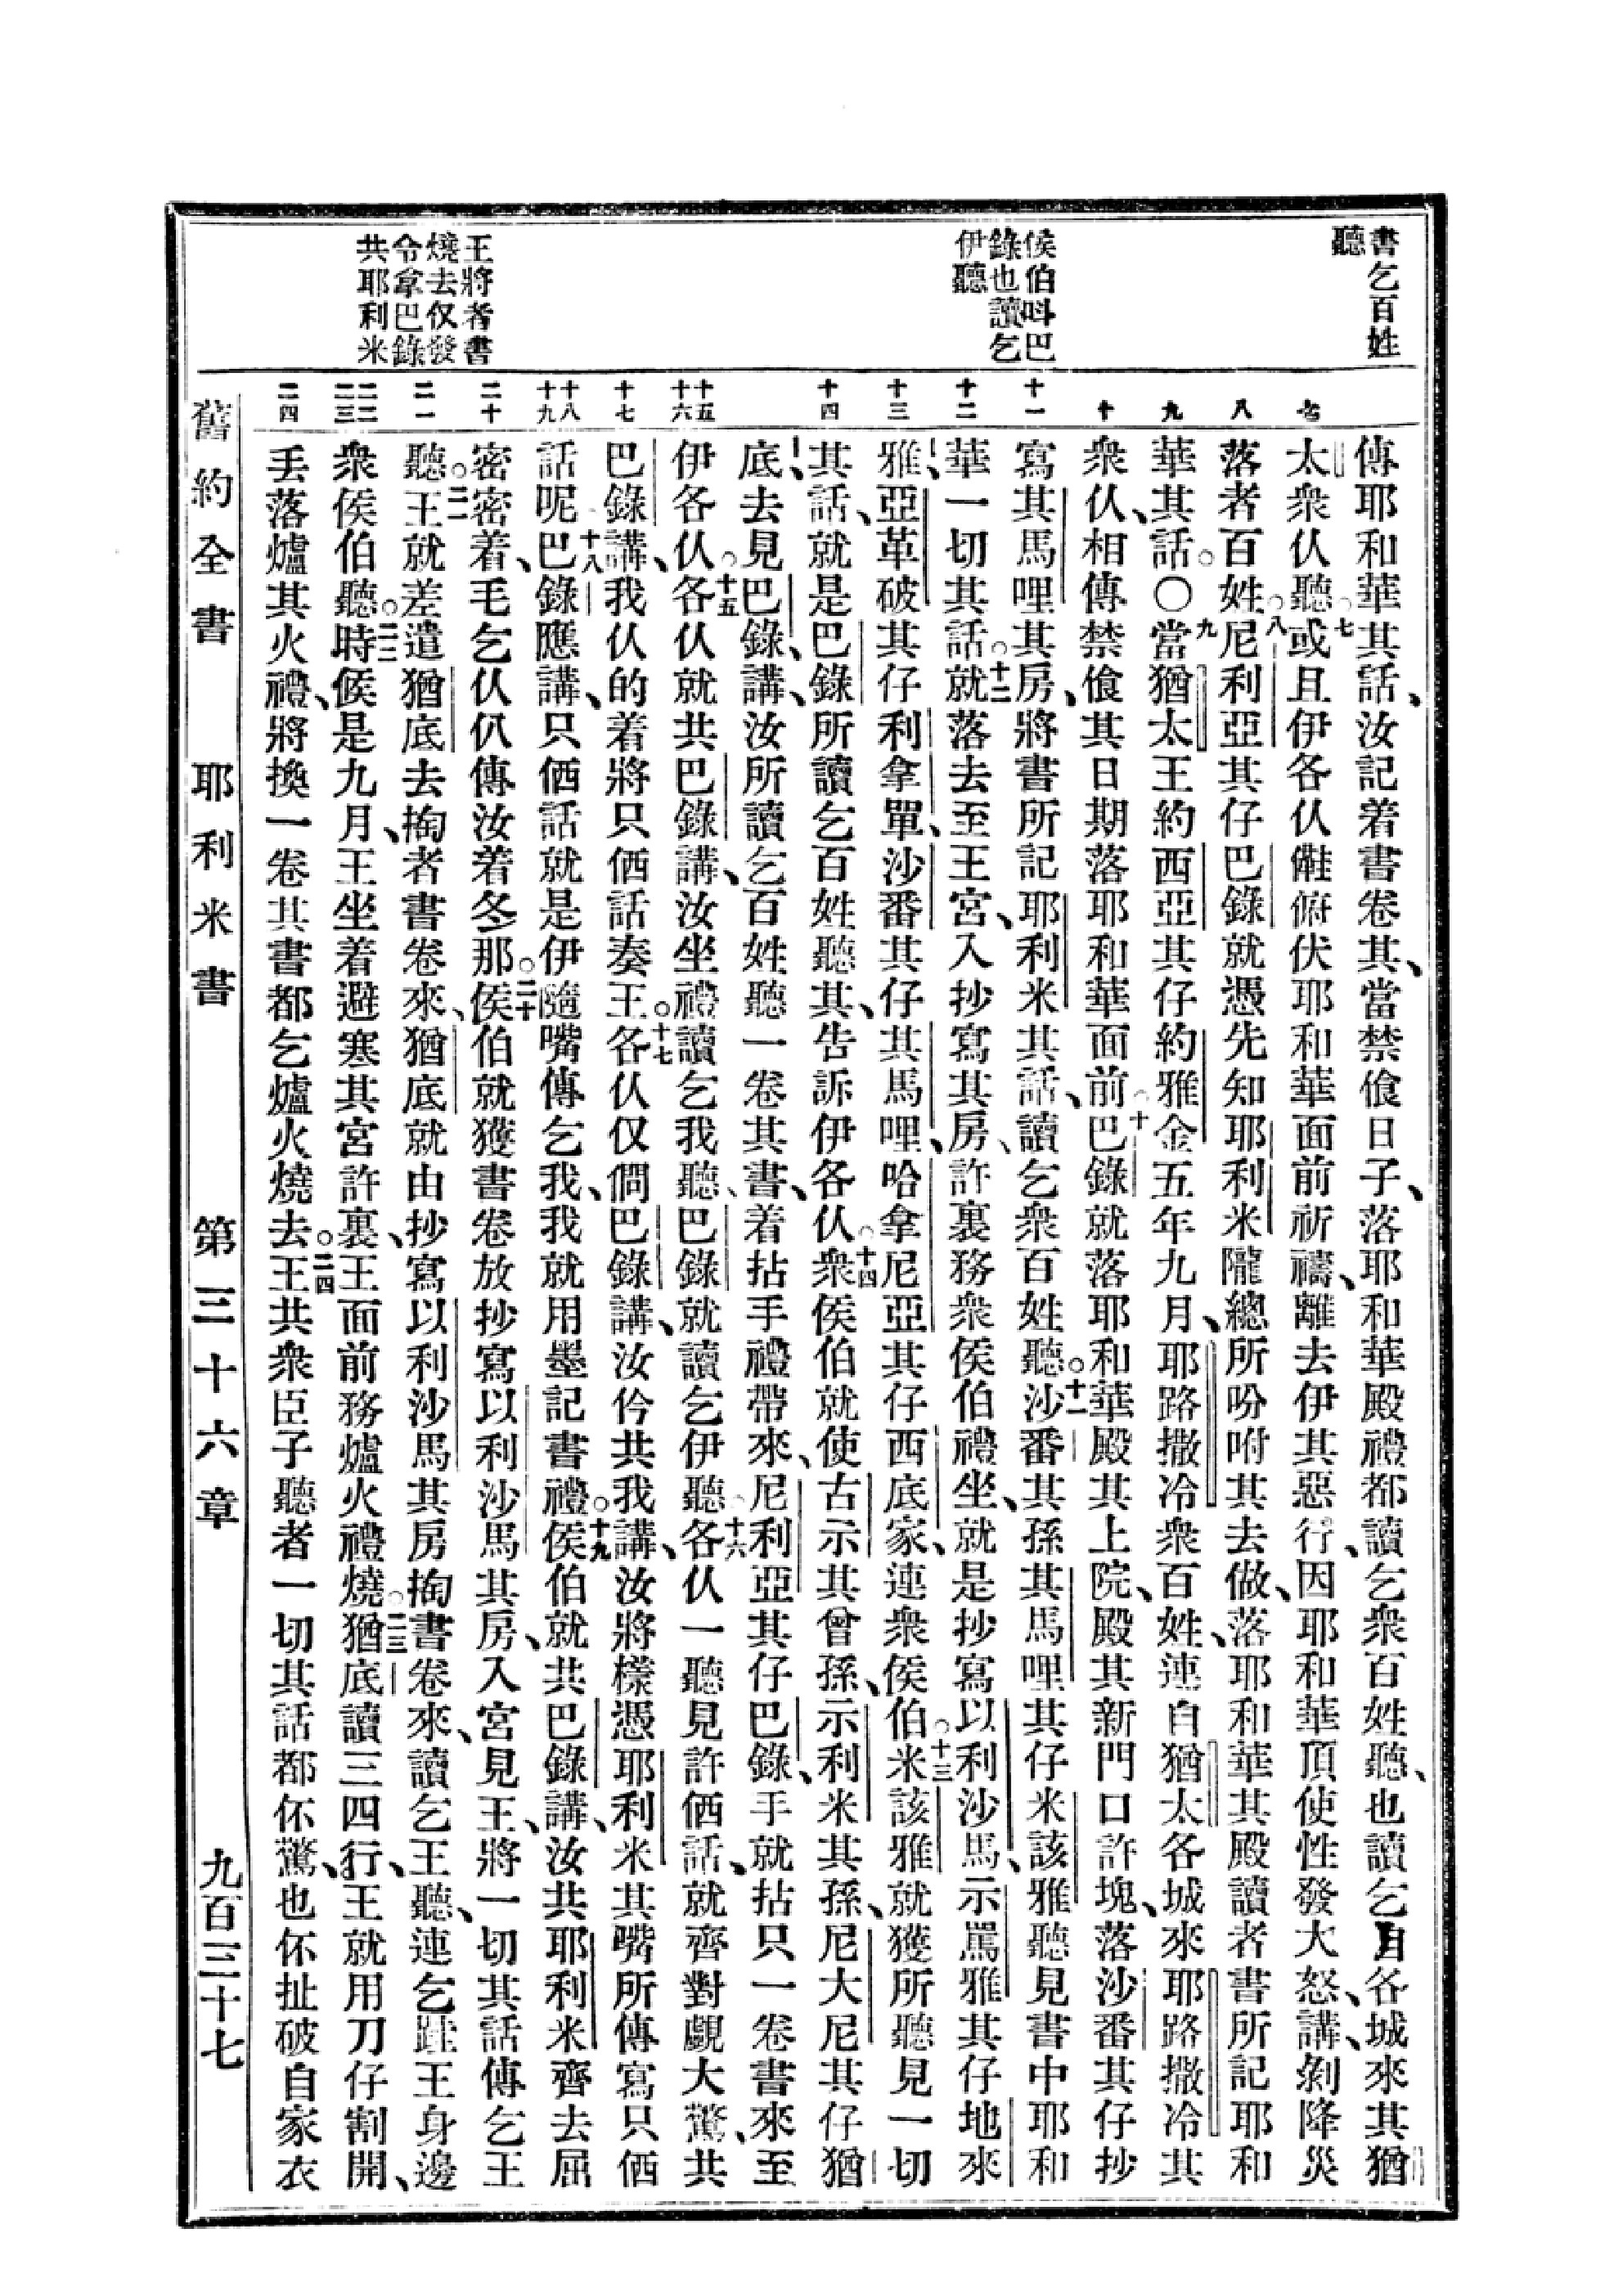 書乞百姓
聽
侯伯呌巴
錄也讀乞
伊聽
王將者書
燒去仅發
令拿巴錄
共耶利米
七
八
九
十
十一
十二
十三
十四
十五
十六
十七
十八
十九
二十
二一
二二
二三
二四
傳耶和華其話、汝記着書卷其、當禁飧日子、落耶和華殿禮都讀乞衆百姓聽、也讀乞自各城來其猶
太衆仈聽。七或且伊各仈俯伏耶和華面前祈禱、離去伊其惡行、因耶和華頂使性發大怒、講、剝降災
落者百姓。八尼利亞其仔巴錄就憑先知耶利米隴總所吩咐其去做、落耶和華其殿讀者書所記耶和
華其話。〇九當猶太王約西亞其仔約雅金五年九月、耶路撒冷衆百姓、連自猶太各城來耶路撒冷其
衆仈、相傳禁飧其日期落耶和華面前。十巴錄就落耶和華殿其上院、殿其新門口許塊、落沙番其仔抄
寫其馬哩其房、將書所記耶利米其話、讀乞衆百姓聽。十一沙番其孫其馬哩其仔米該雅聽見書中耶和
華一切其話。十二就落去至王宮、入抄寫其房、許裏務衆侯伯禮坐、就是抄寫以利沙馬、示罵雅其仔地來
雅、亞革破其仔利拿單、沙番其仔其馬哩、哈拿尼亞其仔西底家、連衆侯伯。十三米該雅就獲所聽見一切
其話、就是巴錄所讀乞百姓聽其、告訴伊各仈。十四衆侯伯就使古示其曾孫、示利米其孫、尼大尼其仔猶
底、去見巴錄、講、汝所讀乞百姓聽一卷其書、着拈手禮帶來、尼利亞其仔巴錄、手就拈只一卷書來至
伊各仈。十五各仈就共巴錄講、汝坐禮讀乞我聽、巴錄就讀乞伊聽。十六各仈一聽見許仾話、就齊對覷大驚、共
巴錄講、我仈的着將只仾話奏王。十七各仈仅問巴錄講、汝仱共我講、汝將樣憑耶利米其嘴所傳寫只仾
話呢。十八巴錄應講、只仾話就是伊隨嘴傳乞我、我就用墨記書禮。十九侯伯就共巴錄講、汝共耶利米齊去屈
密密着、毛乞仈仈傳汝着冬那。二十侯伯就獲書卷放抄寫以利沙馬其房、入宮見王、將一切其話傳乞王
聽。二一王就差遣猶底去掏者書卷來、猶底就由抄寫以利沙馬其房掏書卷來、讀乞王聽、連乞跬王身邊
衆侯伯聽。二二時候是九月、王坐着避寒其宮許裏、王面前務爐火禮燒。二三猶底讀三四行、王就用刀仔割開、
丟落爐其火禮、將換一卷其書都乞爐火燒去。二四王共衆臣子聽者一切其話都伓驚、也伓扯破自家衣
舊約全書　耶利米書　第三十六章　九百三十七